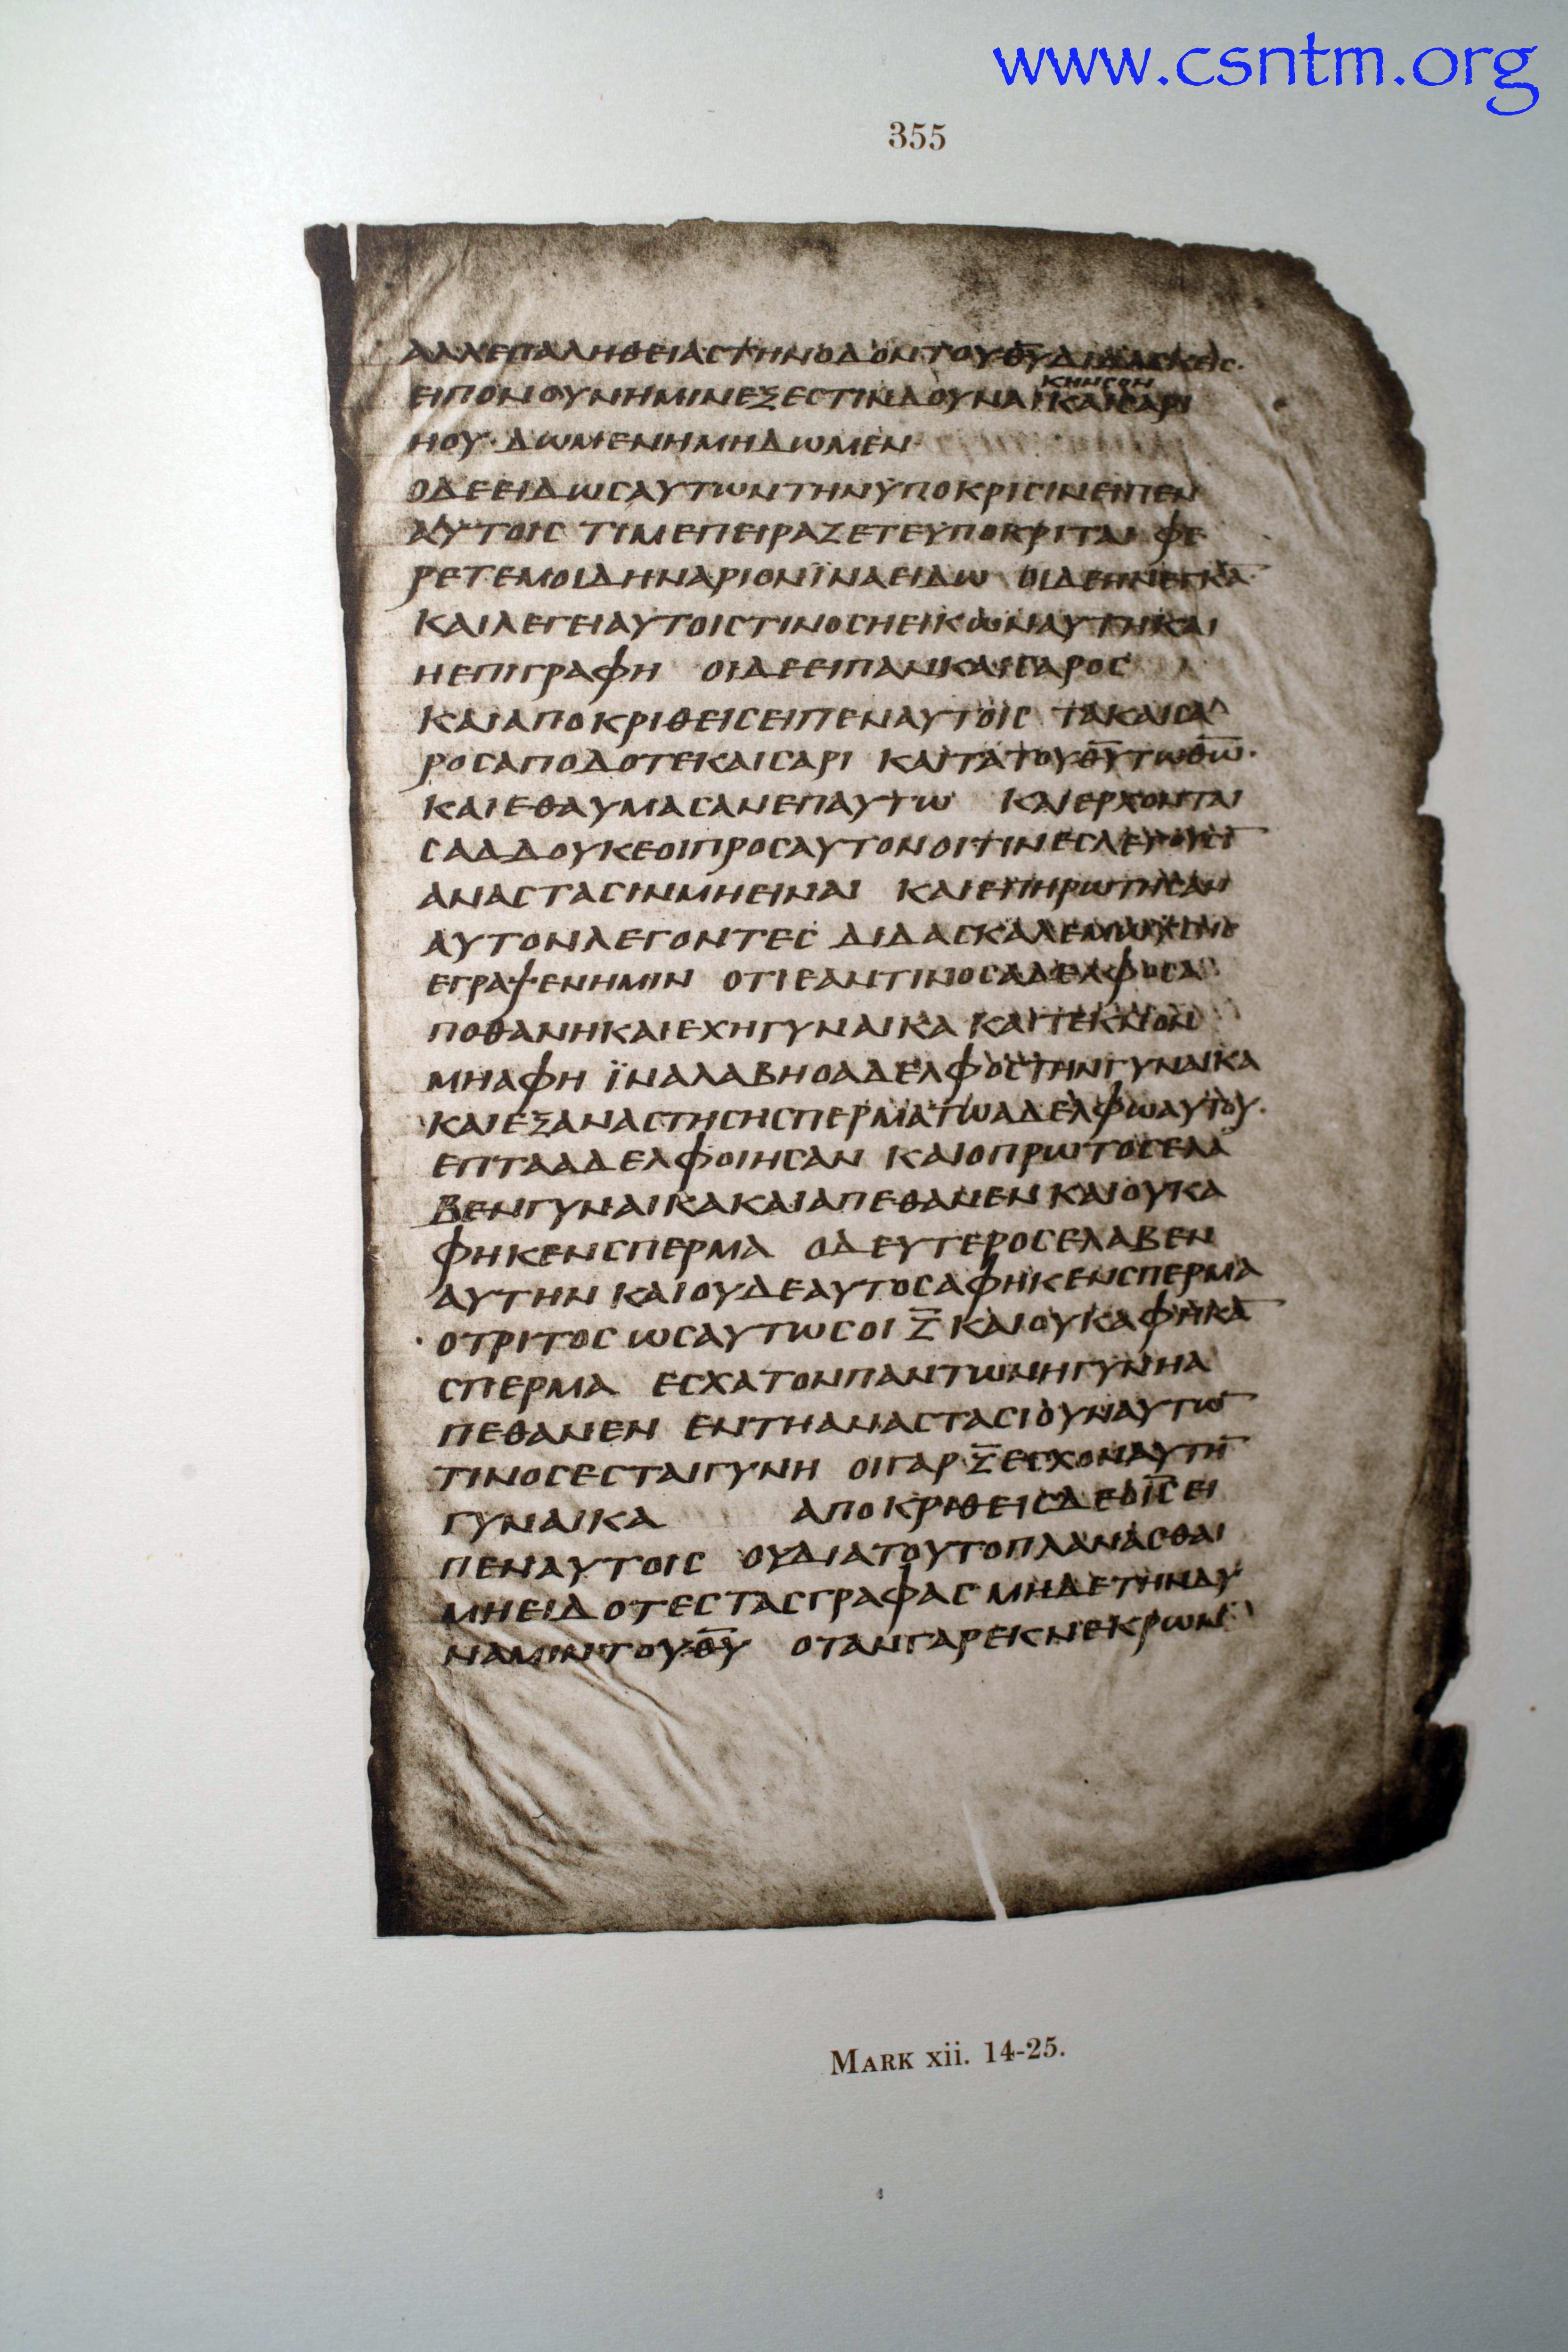 www.csntm.org
355
ΑΛΛΕΠΑΛΗΘΕΙΑΣΤΗΝΟΔΟΝΤΟΥΘ̅Υ̅ΔΙΔΑΣΚΕΙΣ·
ΚΗΝΣΟΝ
ΕΙΠΟΝΟΥΝΗΜΙΝΕΞΕΣΤΙΝΔΟΥΝΑΙΚΑΙΣΑΡΙ
ΗΟΥ· ΔΩΜΕΝΗΜΗΔΩΜΕΝ·
ΟΔΕΕΙΔΩΣΑΥΤΩΝΤΗΝΥΠΟΚΡΙΣΙΝΕΙΠΕΝ
ΑΥΤΟΙΣ ΤΙΜΕΠΕΙΡΑΖΕΤΕΥΠΟΚΡΙΤΑΙ ΦΕ
ΡΕΤΕΜΟΙΔΗΝΑΡΙΟΝΪΝΑΕΙΔΩ ΟΙΔΕΗΝΕΓΚΑ̅
ΚΑΙΛΕΓΕΙΑΥΤΟΙΣΤΙΝΟΣΗΕΙΚΩΝΑΥΤΗΚΑΙ
ΗΕΠΙΓΡΑΦΗ ΟΙΔΕΕΙΠΑΝΚΑΙΣΑΡΟΣ
ΚΑΙΑΠΟΚΡΙΘΕΙΣΕΙΠΕΝΑΥΤΟΙΣ ΤΑΚΑΙΣΑ
ΡΟΣΑΠΟΔΟΤΕΚΑΙΣΑΡΙ ΚΑΙΤΑΤΟΥΘ̅Υ̅ΤΩΘ̅Ω̅·
ΚΑΙΕΘΑΥΜΑΣΑΝΕΠΑΥΤΩ ΚΑΙΕΡΧΟΝΤΑΙ
ΣΑΔΔΟΥΚΕΟΙΠΡΟΣΑΥΤΟΝΟΙΤΙΝΕΣΛΕΓΟΥΣΙ̅
ΑΝΑΣΤΑΣΙΝΜΗΕΙΝΑΙ ΚΑΙΕΠΗΡΩΤΗΣΑΝ
ΑΥΤΟΝΛΕΓΟΝΤΕΣ ΔΙΔΑΣΚΑΛΕΜΩΥΣΗΣ
ΕΓΡΑΨΕΝΗΜΙΝ ΟΤΙΕΑΝΤΙΝΟΣΑΔΕΛΦΟΣΑ
ΠΟΘΑΝΗΚΑΙΕΧΗΓΥΝΑΙΚΑ ΚΑΙΤΕΚΝΟΝ
ΜΗΑΦΗ ΪΝΑΛΑΒΗΟΑΔΕΛΦΟΣΤΗΝΓΥΝΑΙΚΑ
ΚΑΙΕΞΑΝΑΣΤΗΣΗΣΠΕΡΜΑΤΩΑΔΕΛΦΩΑΥΤΟΥ·
ΕΠΤΑΑΔΕΛΦΟΙΗΣΑΝ ΚΑΙΟΠΡΩΤΟΣΕΛΑ
ΒΕΝΓΥΝΑΙΚΑΚΑΙΑΠΕΘΑΝΕΝΚΑΙΟΥΚΑ
ΦΗΚΕΝΣΠΕΡΜΑ ΟΔΕΥΤΕΡΟΣΕΛΑΒΕΝ
ΑΥΤΗΝΚΑΙΟΥΔΕΑΥΤΟΣΑΦΗΚΕΝΣΠΕΡΜΑ
·ΟΤΡΙΤΟΣΩΣΑΥΤΩΣΟΙΖ̅ΚΑΙΟΥΚΑΦΗΚΑ̅
ΣΠΕΡΜΑ ΕΣΧΑΤΟΝΠΑΝΤΩΝΗΓΥΝΗΑ
ΠΕΘΑΝΕΝ ΕΝΤΗΑΝΑΣΤΑΣΙΟΥΝΑΥΤΩ̅
ΤΙΝΟΣΕΣΤΑΙΓΥΝΗ ΟΙΓΑΡΖ̅ΕΣΧΟΝΑΥΤΗ̅
ΓΥΝΑΙΚΑ ΑΠΟΚΡΙΘΕΙΣΔΕΟΙ̅Σ̅ΕΙ
ΠΕΝΑΥΤΟΙΣ ΟΥΔΙΑΤΟΥΤΟΠΛΑΝΑΣΘΑΙ
ΜΗΕΙΔΟΤΕΣΤΑΣΓΡΑΦΑΣΜΗΔΕΤΗΝΔΥ
ΝΑΜΙΝΤΟΥΘ̅Υ̅ ΟΤΑΝΓΑΡΕΚΝΕΚΡΩΝ
MARK xii. 14-25.